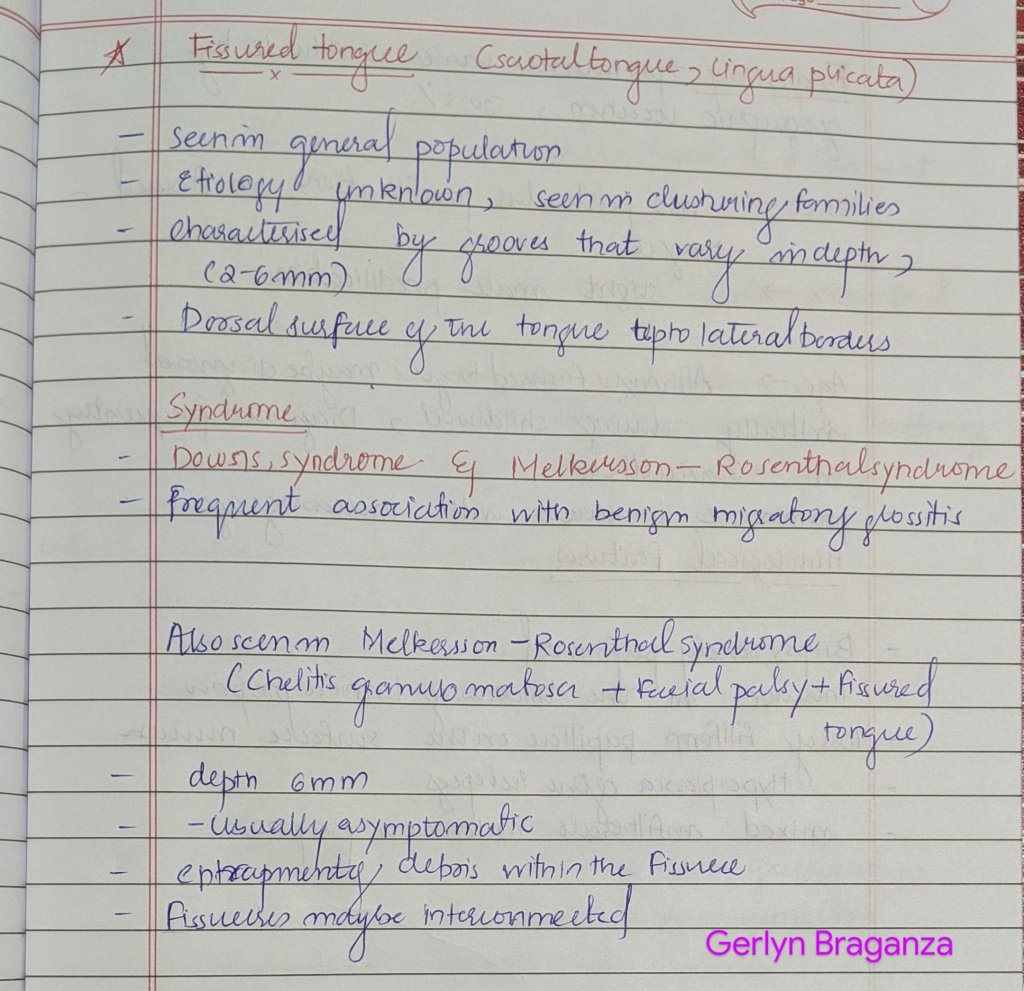 Fissured tongue (scrotal tongue, Lingua plicata)
- seen in general population
- Etiology unknown, seen in clustering families
- Characterised by grooves that vary in depth,
(2-6mm)
- Dorsal surface of the tongue upto lateral borders
Syndrome
- Downs, syndrome & Melkersson - Rosenthal syndrome
- frequent association with benign migratory glossitis
Also seen in Melkersson - Rosenthal syndrome
(Chelitis granulomatosa + Facial palsy + Fissured
tongue)
- depth 6mm
- - Usually asymptomatic
- entrapment of debris within the fissure
- Fissures maybe interconnected
Gerlyn Braganza